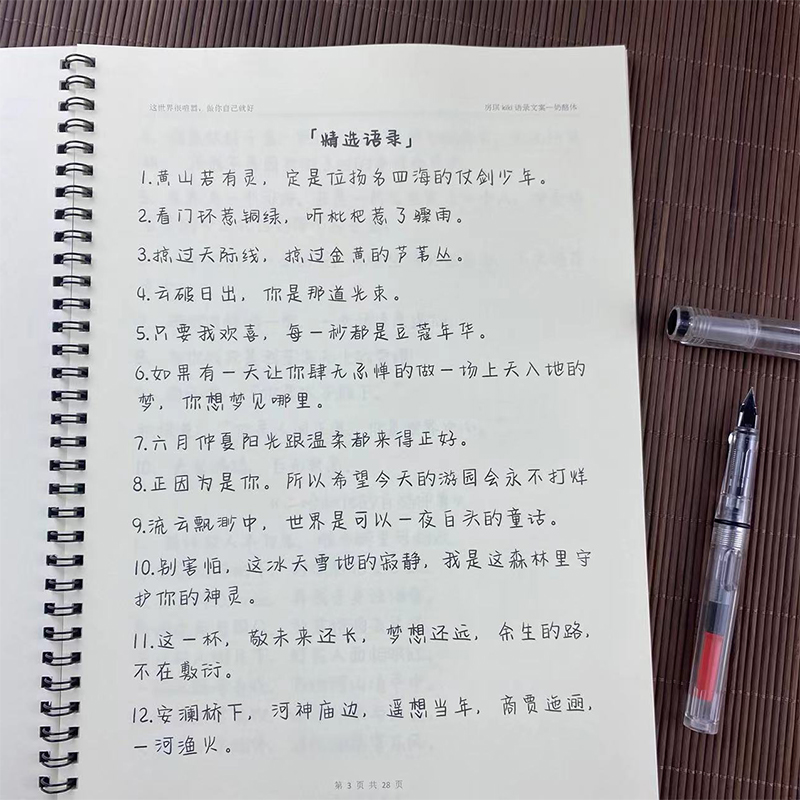 这世界很喧嚣，做你自己就好
「精选语录」
1.黄山若有灵，定是位扬名四海的仗剑少年。
2.看门环惹铜绿，听枇杷惹了骤雨。
3.掠过天际线，掠过金黄的芦苇丛。
4.云破日出，你是那道光束。
5.只要我欢喜，每一秒都是豆蔻年华。
6.如果有一天让你肆无忌惮的做一场上天入地的
梦，你想梦见哪里。
7.六月仲夏阳光跟温柔都来得正好。
8.正因为是你。所以希望今天的游园会永不打烊
9.流云飘渺中，世界是可以一夜白头的童话。
10.别害怕，这冰天雪地的寂静，我是这森林里守
护你的神灵。
11.这一杯，敬未来还长，梦想还远，余生的路，
不在敷衍。
12.安澜桥下，河神庙边，遥想当年，商贾迤逦，
一河渔火。
第 3 页 共 28 页